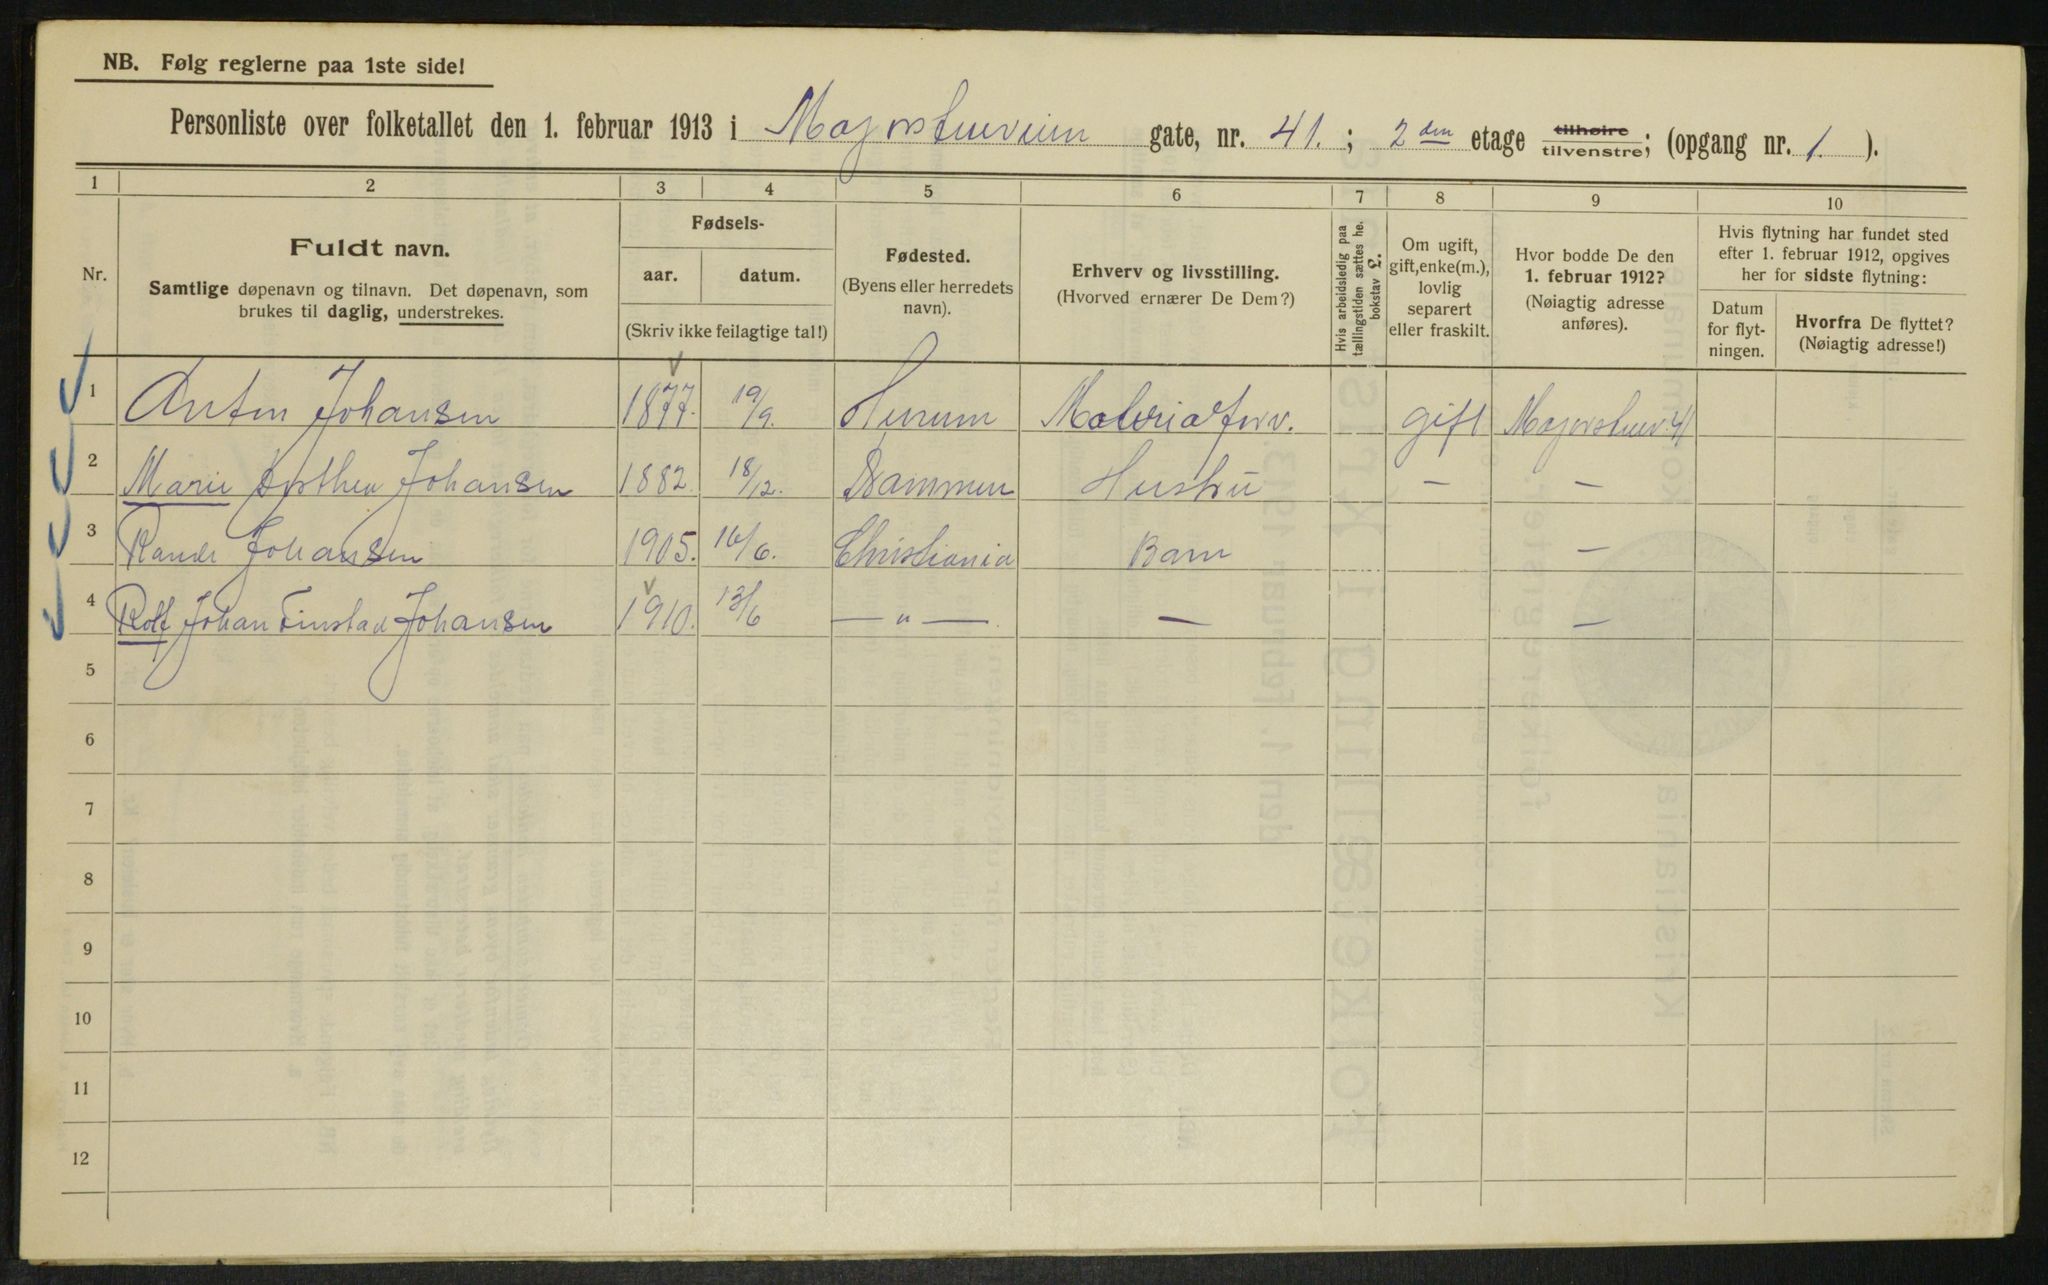 NB. Følg reglerne paa 1ste side!
Personliste over folketallet den 1. februar 1913 i Majorstueveien gate, nr. 41. ; 2den etage tilhøire tilvenstre; (opgang nr. 1. ).
1 2 3 4 5 6 7 8 9 10
Nr.
Fuldt navn.
Samtlige døpenavn og tilnavn. Det døpenavn, som
brukes til daglig, understrekes.
Fødsels-
aar. datum.
(Skriv ikke feilagtige tal!)
Fødested.
(Byens eller herredets
navn).
Erhverv og livsstilling.
(Hvorved ernærer De Dem?)
Hvis arbeidsledig paa
tællingstiden sættes he.
bokstav L.
Om ugift,
gift, enke(m.),
lovlig
separert
eller fraskilt.
Hvor bodde De den
1. februar 1912?
(Nøiagtig adresse
anføres).
Hvis flytning har fundet sted
efter 1. februar 1912, opgives
her for sidste flytning:
Datum
for flyt-
ningen.
Hvorfra De flyttet?
(Nøiagtig adresse!)
1 Anton Johansen 1877. 19/9. Hurum Materialforv. gift Majorstuev. 41
2 Marie Dorthea Johansen 1882. 18/12. Drammen Hustru — —
3 Johansen 1905. 16/6. Christiania Barn —
4 Rolf Johan Finstad Johansen 1910. 13/6 — " — — —
5
6
7
8
9
10
11
12